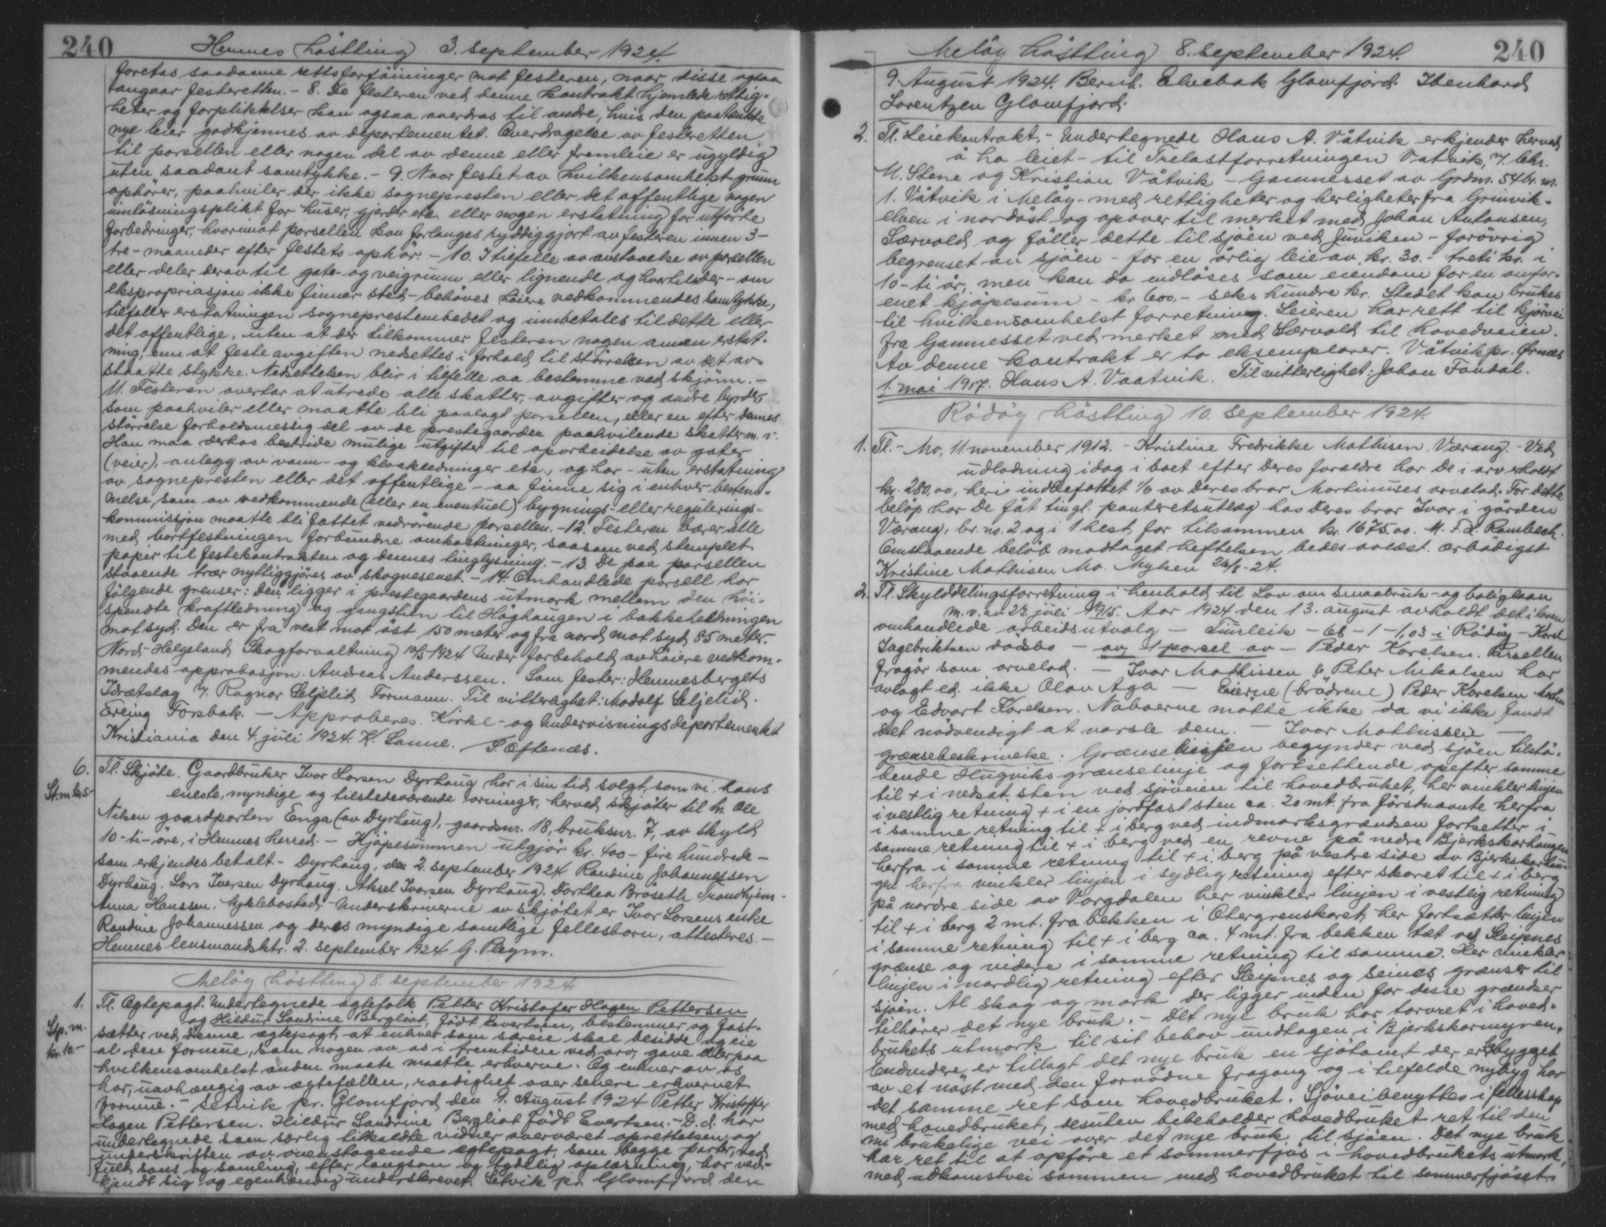 240 Hemnes hösttting 3. september 1924.
foretas saadanne rettsforföininger mot festeren, naar disse ogsaa
angaar festeretten. - 8. De festeren ved denne kontrakt hjemlede rettig-
heter og forpliktelser kan ogsaa overdras til andre, hvis den paatenkte
nye leier godkjennes av departementet. Overdragelse av festeretten
til parsellen eller nogen del av denne eller fremleie er ugyldig
uten saadant samtykke. - 9. Naar festet av hvilkensomhelst grunn
ophører, paahviler der ikke sognepresten eller det offentlige nogen
innlösningsplikt for huser, gjerder etc. eller nogen erstatning for utförte
forbedringer, hvorimot parsellen kan forlanges ryddiggjort av festeren innen 3-
tre - maaneder efter festets ophör. - 10. I tilfelle av avstaaelse av parsellen
eller deler derav til gate- og veigrunn eller lignende og hvortil der - om
ekspropriasjon ikke finner sted - behöves höiere vedkommendes samtykke,
tilfaller erstatningen sogneprestembedet og innbetales til dette eller
det offentlige, uten at der tilkommer festeren nogen annen erstat-
ning, enn at festeavgiften nedsettes i forhold til störrelsen av det av-
staatte stykke. Nedsettelsen blir i tilfelle aa bestemme ved skjönn. -
11. Festeren overtar at utrede alle skatter, avgifter og andre byrder,
som paahviler eller maatte bli paalagt parsellen, eller en efter dennes
störrelse forholdsmessig del av de prestegaarden paahvilende skatter m. v.
Han maa derhos bestride mulige utgifter til oparbeidelse av gater
(veier), anlegg av vann- og kloakledninger etc., og har - uten erstatning
av sognepresten eller det offentlige - aa finne sig i enhver bestem-
melse, som av vedkommende (eller en eventuel) bygnings- eller regulerings-
kommisjon maatte bli fattet vedrörende parsellen. - 12. Festeren bærer alle
med bortfestningen forbundne omkostninger, saasom ved stemplet
papir til festekontrakten og dennes tinglysning. - 13. De paa parsellen
staaende trær nyttiggjöres av skogvesenet. - 14. Omhandlede parsell har
fölgende grenser: Den ligger i prestegaardens utmark mellem den höi-
spendte kraftledning og gangstien til Höghaugen i bakkeheldningen
mot syd. Den er fra vest mot öst 150 meter og fra nord mot syd 85 meter.
Nord-Helgeland Skogforvaltning 1924 Under forbehold av höiere vedkom-
mendes approbasjon. Andreas Anderssen. Som fester: Hemnesbergets
Idrætslag v. Ragnar Seljelid Formann. Til vitterlighet: Modolf Seljelid.
Erling Forsbak. - Approberes. Kirke- og Undervisningsdepartementet
Kristiania den 4 juli 1924. K. Sanne. S. Eftenæs.
6. Tl. Skjöte. Gaardbruker Ivar Larsen Dyrhaug har i sin tid solgt, som vi, hans
St.m. eneste, myndige og tilstedeværende arvinger, herved skjöter til hr. Ole
Nilsen gaardparten Enga (av Dyrhaug), gaardsnr. 18, bruksnr. 7, av skyld
10 - ti - öre, i Hemnes herred. - Kjöpesummen utgjör kr. 400 - fire hundrede -
som erkjendes betalt. - Dyrhaug, den 2. september 1924 Randine Johannessen
Dyrhaug. Lars Iversen Dyrhaug. Aksel Iversen Dyrhaug. Dorthea Bröseth Trondhjem.
Anna Hanssen. Myklebostad. - Underskriverne av skjötet er Ivar Larsens enke
Randine Johannessen og deres myndige samtlige fellesbarn, attesteres. -
Hemnes lensmandsktr. 2. september 1924. G. Plegm.
Meløy hösttting 8. september 1924
1. Tl. Egtepagt. Undertegnede egtefolk Petter Kristofer Hagen Pettersen
Stp. m. og Hildur Sandrine Bergliot, födt Evertsen, bestemmer og fast-
kr. 10.- sætter ved denne egtepagt, at enhver som særeie skal besidde og eie
al den formue, som nogen av os i fremtiden ved arv, gave eller paa
hvilkensomhelst anden maate maatte erhverve. Og enhver av os
har, uavhængig av egtefællen, raadighet over senere erhvervet
formue. - Setvik pr. Glomfjord den 9. August 1924 Petter Kristoffer
Hagen Pettersen. Hildur Sandrine Bergliot födt Evertsen. - D.d. har
undertegnede som særlig tilkaldte vidner overværet oprettelsen og
underskriften av ovenstaaende egtepagt, som begge parter, ved
fuld sans og samling, efter langsom og tydelig oplæsning, har ved-
kjendt sig og egenhændig underskrevet. Setvik pr. Glomfjord den
Meløy hösttting 8. september 1924. 240
9. August 1924. Bernh. Elvebak Glomfjord. Ibenhard
Lorentzen Glomfjord.
2. Tl. Leiekontrakt. - Undertegnede Hans A. Våtvik erkjender herved
å ha leiet til Trelastforretningen Vatvik, v. Chr.
M. Stene og Kristian Våtvik - Gamnesset av Grdnr. 54 br. nr.
1. Våtvik i Meløy med rettigheter og herligheter fra Grunvik-
elven i nordøst og opover til merket med Johan Antonsen,
Særvold og fölger dette til sjöen ved Juviken - forövrig
begrenset av sjöen - for en årlig leie av kr. 30.- treti kr. i
10 - ti år, men kan da indlöses som eiendom for en omfor-
enet kjöpesum - kr. 600,- seks hundre kr. Stedet kan brukes
til hvilkensomhelst forretning. Leieren har rett til kjörvei
fra Gamnesset ved merket med Særvold til hovedveien.
Av denne kontrakt er to eksemplarer. Våtvik pr. Ørnes
1. mai 1917. Hans A. Vaatvik. Til vitterlighet: Johan Fondal.
Rødøy hösttting 10. september 1924.
1. Tl. - Mo, 11 november 1912. - Kristine Fredrikke Mathisen Værang. - Ved
udlodning idag i boet efter Deres foreldre har De i arv erholdt
kr. 280,00, heri indbefattet 1/6 av Deres bror Martinuses arvelod. For dette
beløp har De fåt tingl. panteretsutlæg hos Deres bror Ivar i gården
Værang, br. no. 2 og i 1 hest, for tilsammen kr. 1675.00. M. F. d. Rambech.
Omstaaende beløb modtaget heftelsen bedes avlæst. ærbödigst
Kristine Mathisen Mo. Myhen 26/8-24.
2. Tl. Skylddelingsforretning i henhold til Lov om smaabruk- og boliglaan
m. v. av 23 juli 1915. Aar 1924 den 13. august avholdt det i loven
omhandlede arbeidsutvalg - Tunleik - 68 - 1 - 1,03 i Rödöy - Karel
Jagebriktsen dödsbo - av 1 parsel av - Peder Korelsen. Parsellen
fragår som arvelod. - Ivar Mathissen & Peter Mikalsen har
avlagt ed ikke Olav Aga - Eierne (brödrene) Peder Korelsen
og Edvart Korelsen. Naboerne møtte ikke da vi ikke fandt
det nödvendigt at varsle dem. - Ivar Mathissen -
grænsebeskrivelse: Grænselinjen begynder ved sjöen tilstö-
dende Hugviks grænselinje og fortsettende opefter samme
til + i nedsat sten ved sjöveien til hovedbruket, her vinkler linjen
i vestlig retning + i en jordfast sten ca. 20 mt. fra förstnævnte herfra
i samme retning til + i berg ved indmarksgrændsen fortsetter i
samme retning til + i berg ved en revne på nedre Bjerkskarhaugen
herfra i samme retning til + i berg på vestre side av Bjerkskarhau-
gen herfra vinkler linjen i sydlig retning efter skaret til + i berg
på nordre side av Vorgdalen her vinkler linjen i vestlig retning
til + i berg 2 mt. fra bekken i Otergrenskaret, her fortsætter linjen
i samme retning til + i berg ca. 4 mt. fra bekken tæt ved Sleipnes
grænse og videre i samme retning til samme. Her vinkler
linjen i nordlig retning efter Sleipnes og Seines grænser til
sjöen. Al skog og mark der ligger inden for disse grændser
tilhører det nye bruk. - Det nye bruk har torvret i hoved-
brukets utmark til sit behov undtagen i Bjerkskarmyren.
Endvidere er tillagt det nye bruk en sjötomt der er bebygget
av et nöst med den fornödne fragang og i tilfelde nybyg har
det samme ret som hovedbruket. Sjövei benyttes i fellesskap
med hovedbruket, desuten bebeholder hovedbruket ret til den
nu brukelige vei over det nye bruk til sjöen. Det nye bruk
har ret til at opföre et sommerfjös i hovedbrukets utmark,
med adkomstvei sammen med hovedbruket til sommerfjöset.